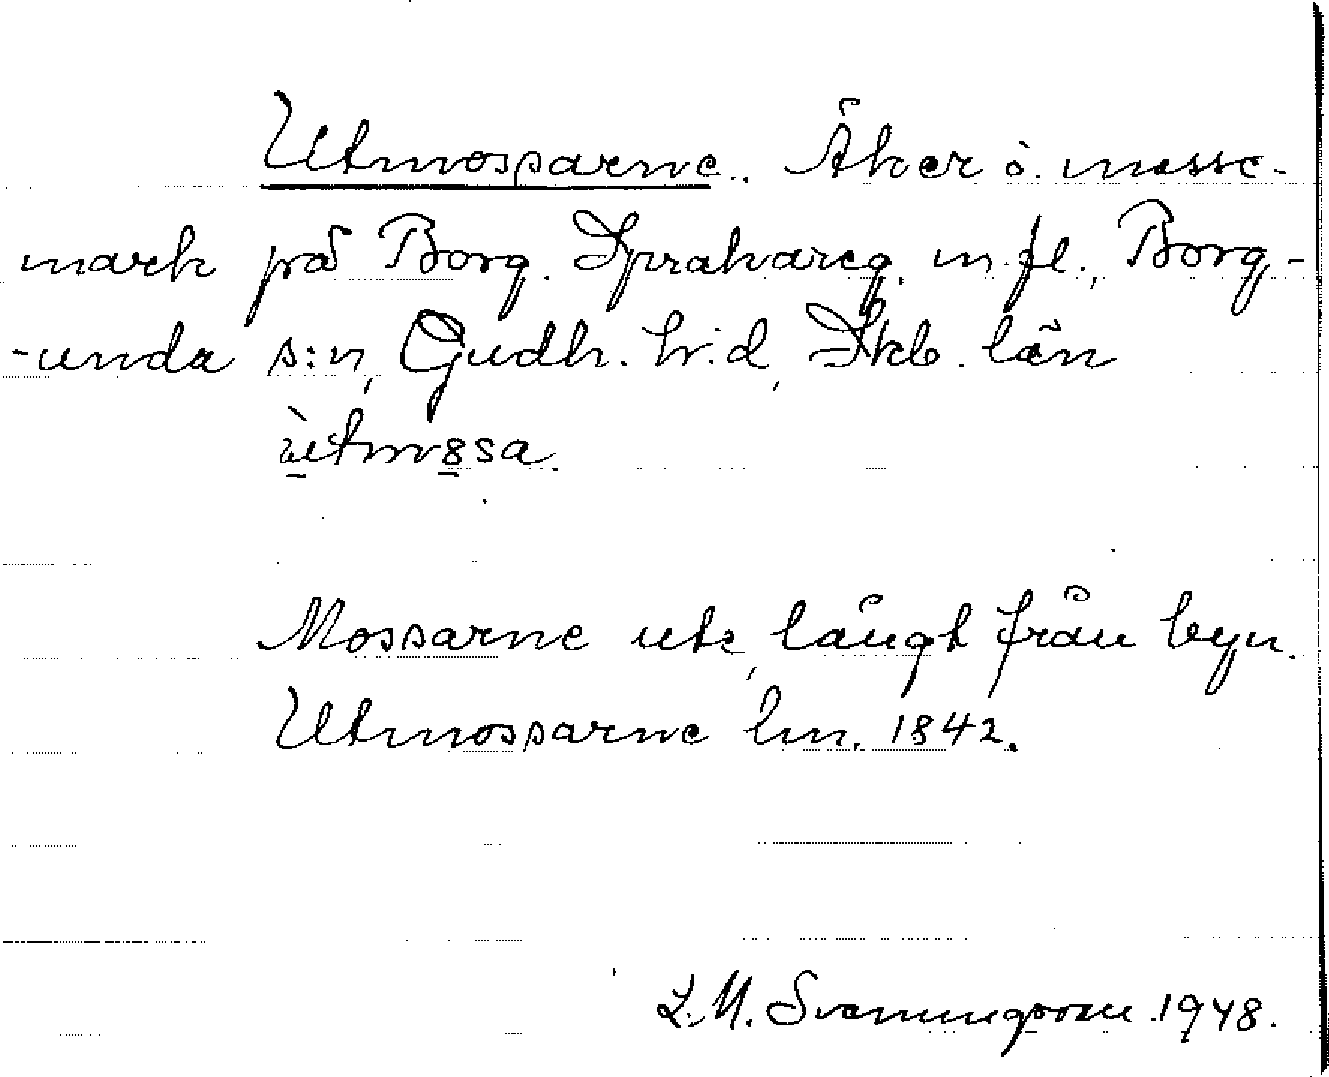 Utmossarne. Åker o. mosse-
mark på Borg. Sprakareg. m. fl., Borg-
-unda s:n, Gudh. h:d, Skb. län
ùtmssa.
Mossarne ute, långt från byn.
Utmossarne lm. 1842.
L. M. Svenungsson 1948.